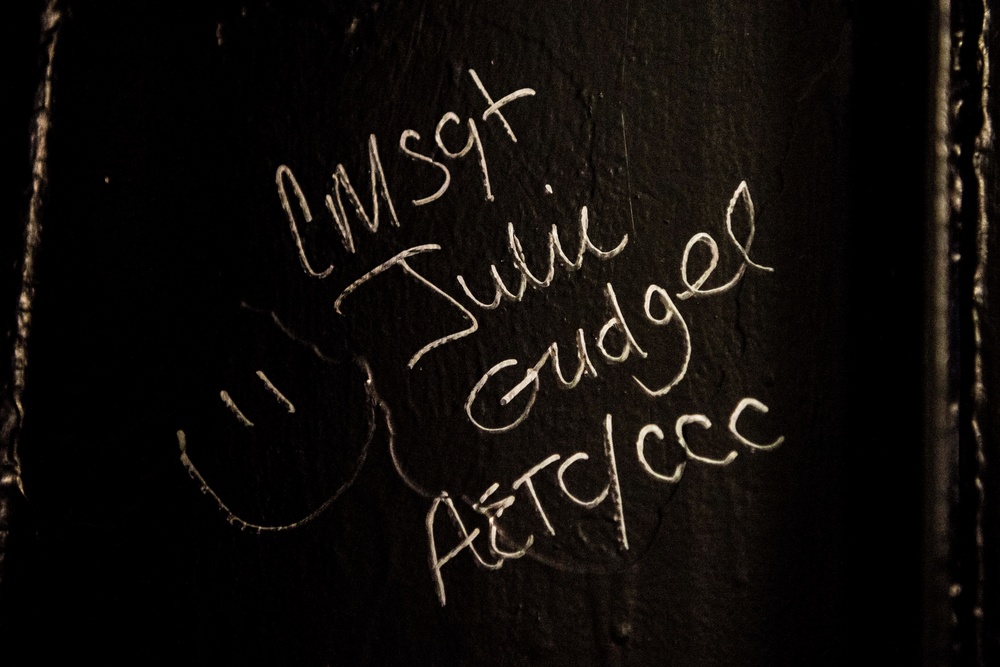 CMSgt
Julie
Gudgel
AETC/CCC